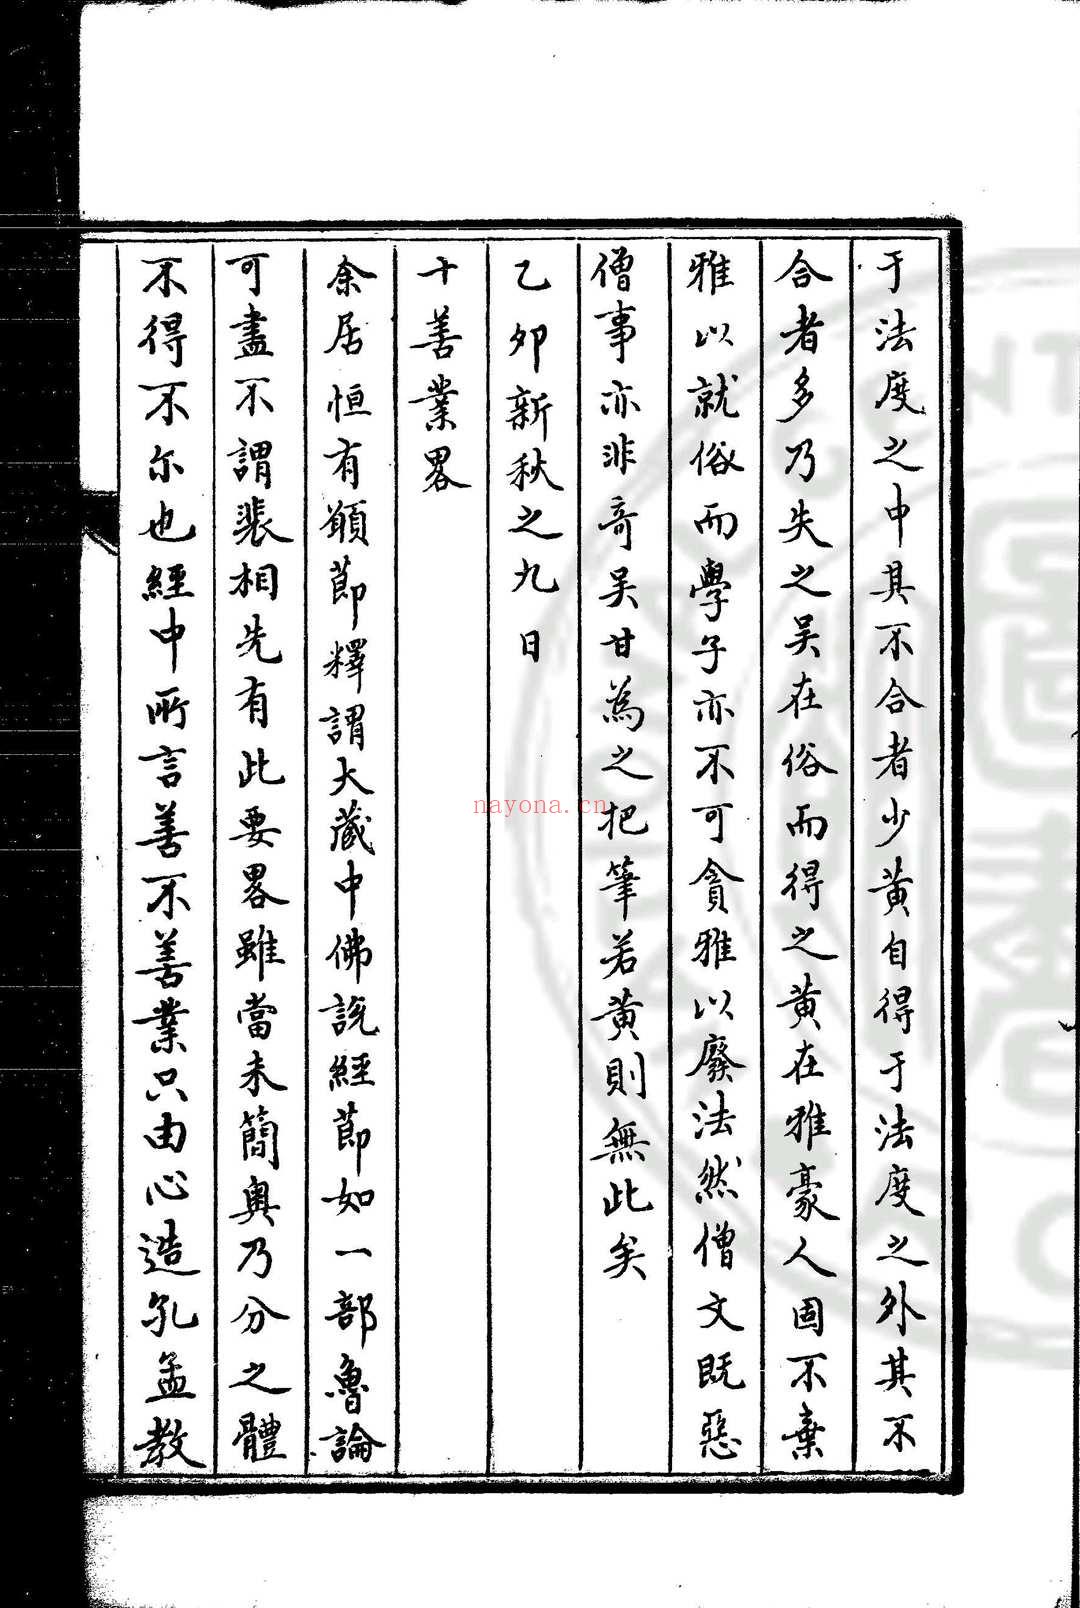 于法度之中其不合者少黄自得于法度之外其不
合者多乃失之吴在俗而得之黄在雅豪人固不棄
雅以就俗而學子亦不可貪雅以廢法然僧文既惡
僧事亦非奇吴甘為之把筆若黄則無此矣
乙夘新秋之九日
十善業畧
余居恒有願節釋謂大藏中佛説經節如一部魯論
可盡不謂裴相先有此要畧雖當未簡奥乃分之體
不得不尔也經中所言善不善業只由心造孔孟教
nayona.cn